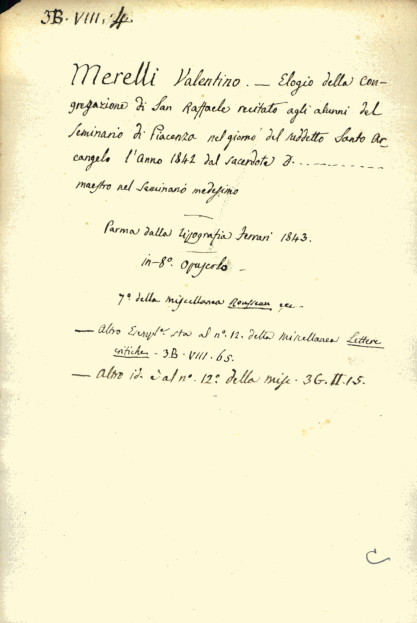 3B. VIII. 4.
Merelli Valentino. — Elogio della con-
gregazione di San Raffaele recitato agli alunni del
Seminario di Piacenza nel giorno del suddetto Santo Ar
cangelo l'Anno 1842 dal sacerdote D. -----------
maestro nel Seminario medesimo
Parma dalla tipografia Ferrari 1843.
in-8°. Opuscolo -
7ª della miscellanea Rousseau ec. -
— Altro Esempl.e sta al n°. 12. della miscellanea Lettere
critiche - 3B. VIII. 65.
— Altro id. è al n°. 12° della misc. 3G. II. 15.
C